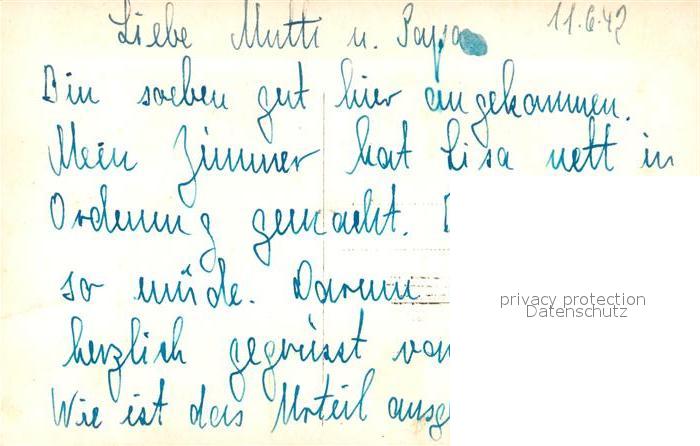 11.6.42
Liebe Mutti u. Papa
Bin soeben gut hier angekommen.
Mein Zimmer hat Lisa nett in
Ordnung gemacht.
so müde. Darum
privacy protection
Datenschutz
herzlich gegrüsst von
Wie ist das Urteil ausg